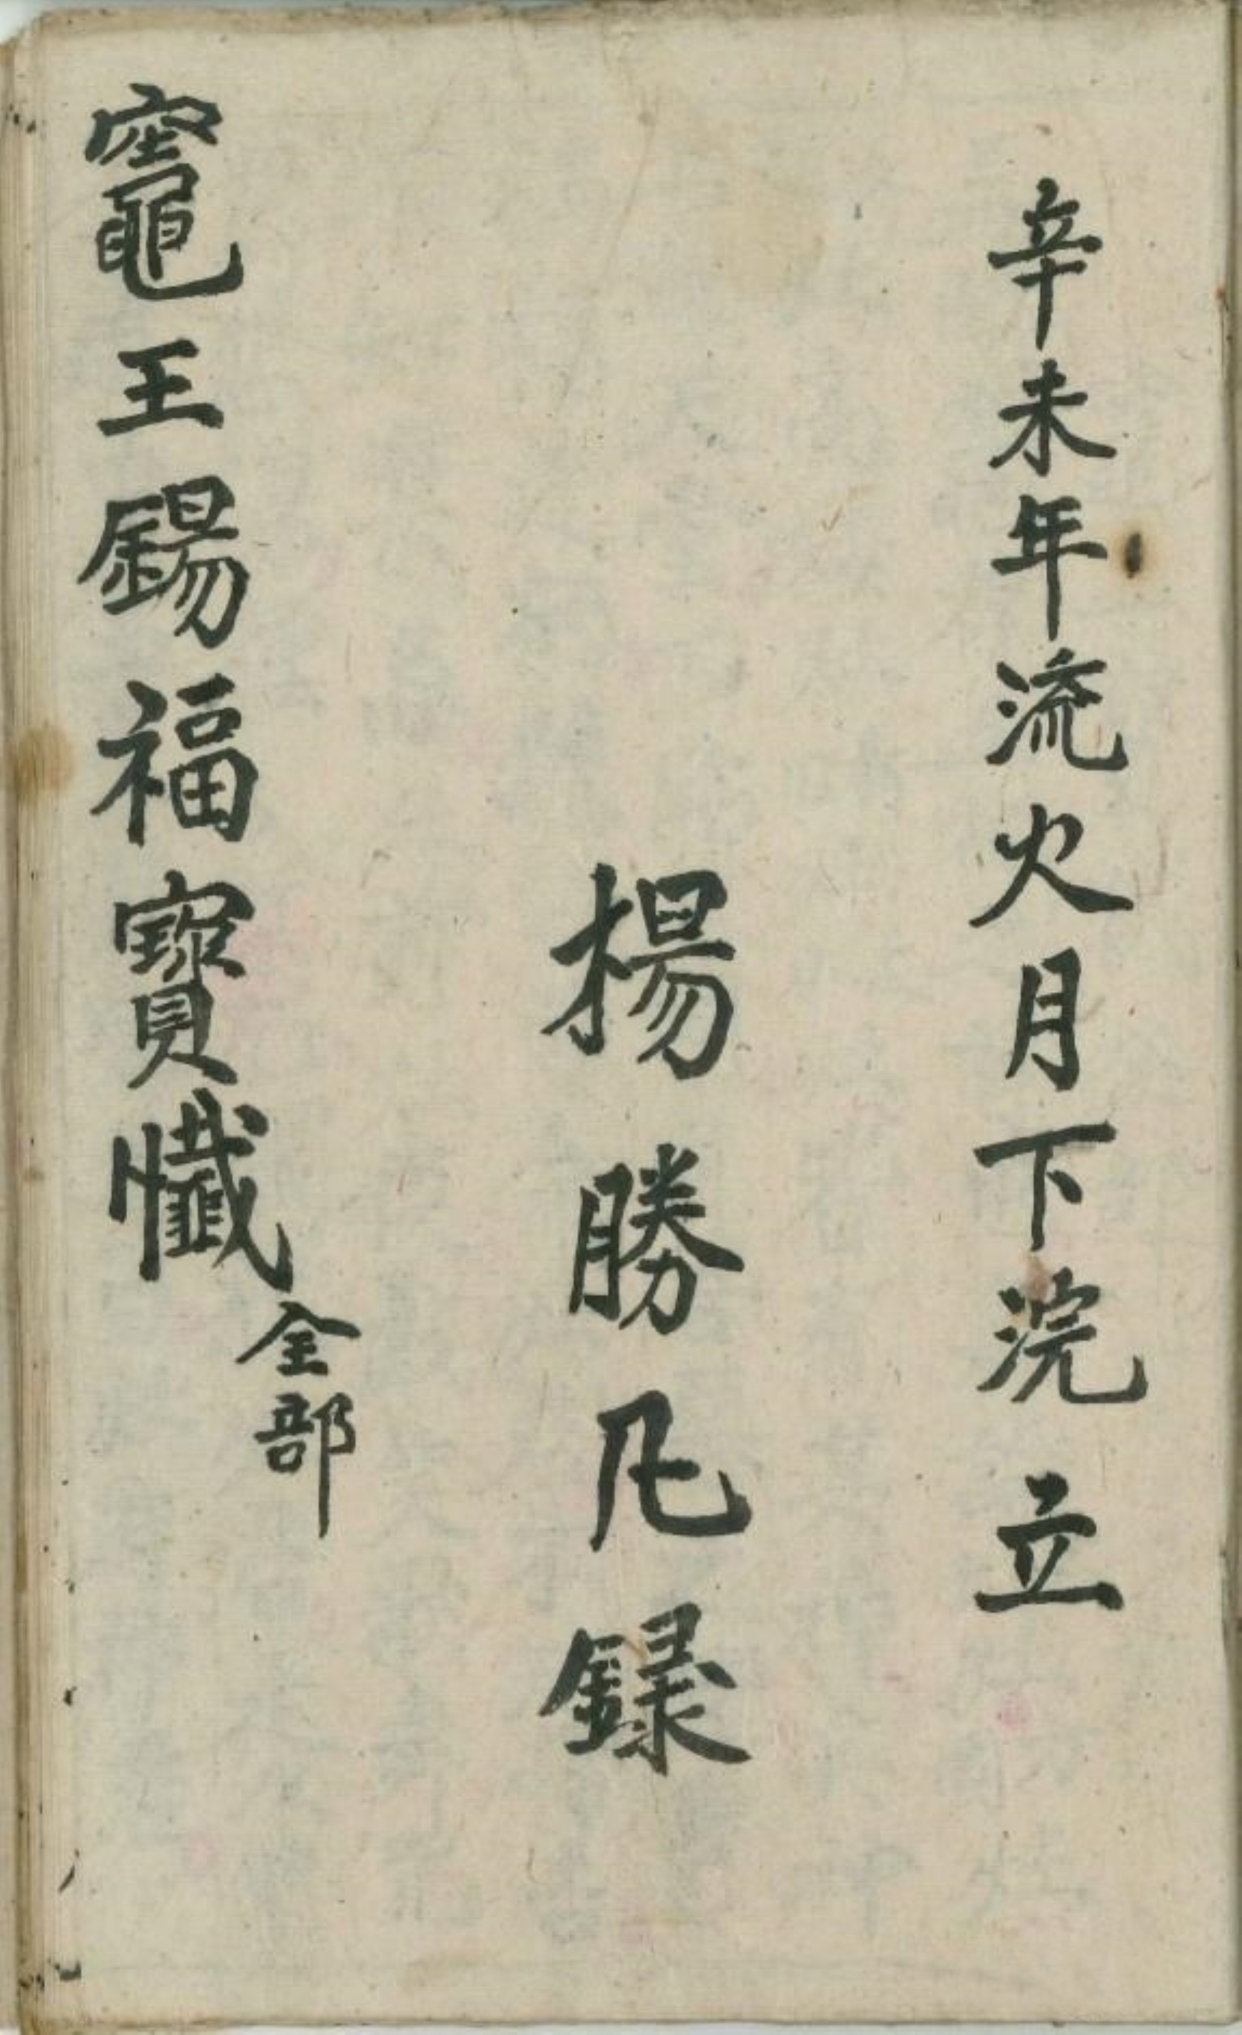 辛未年流火月下浣立
楊勝凡錄
竈王錫福寳懺
全部